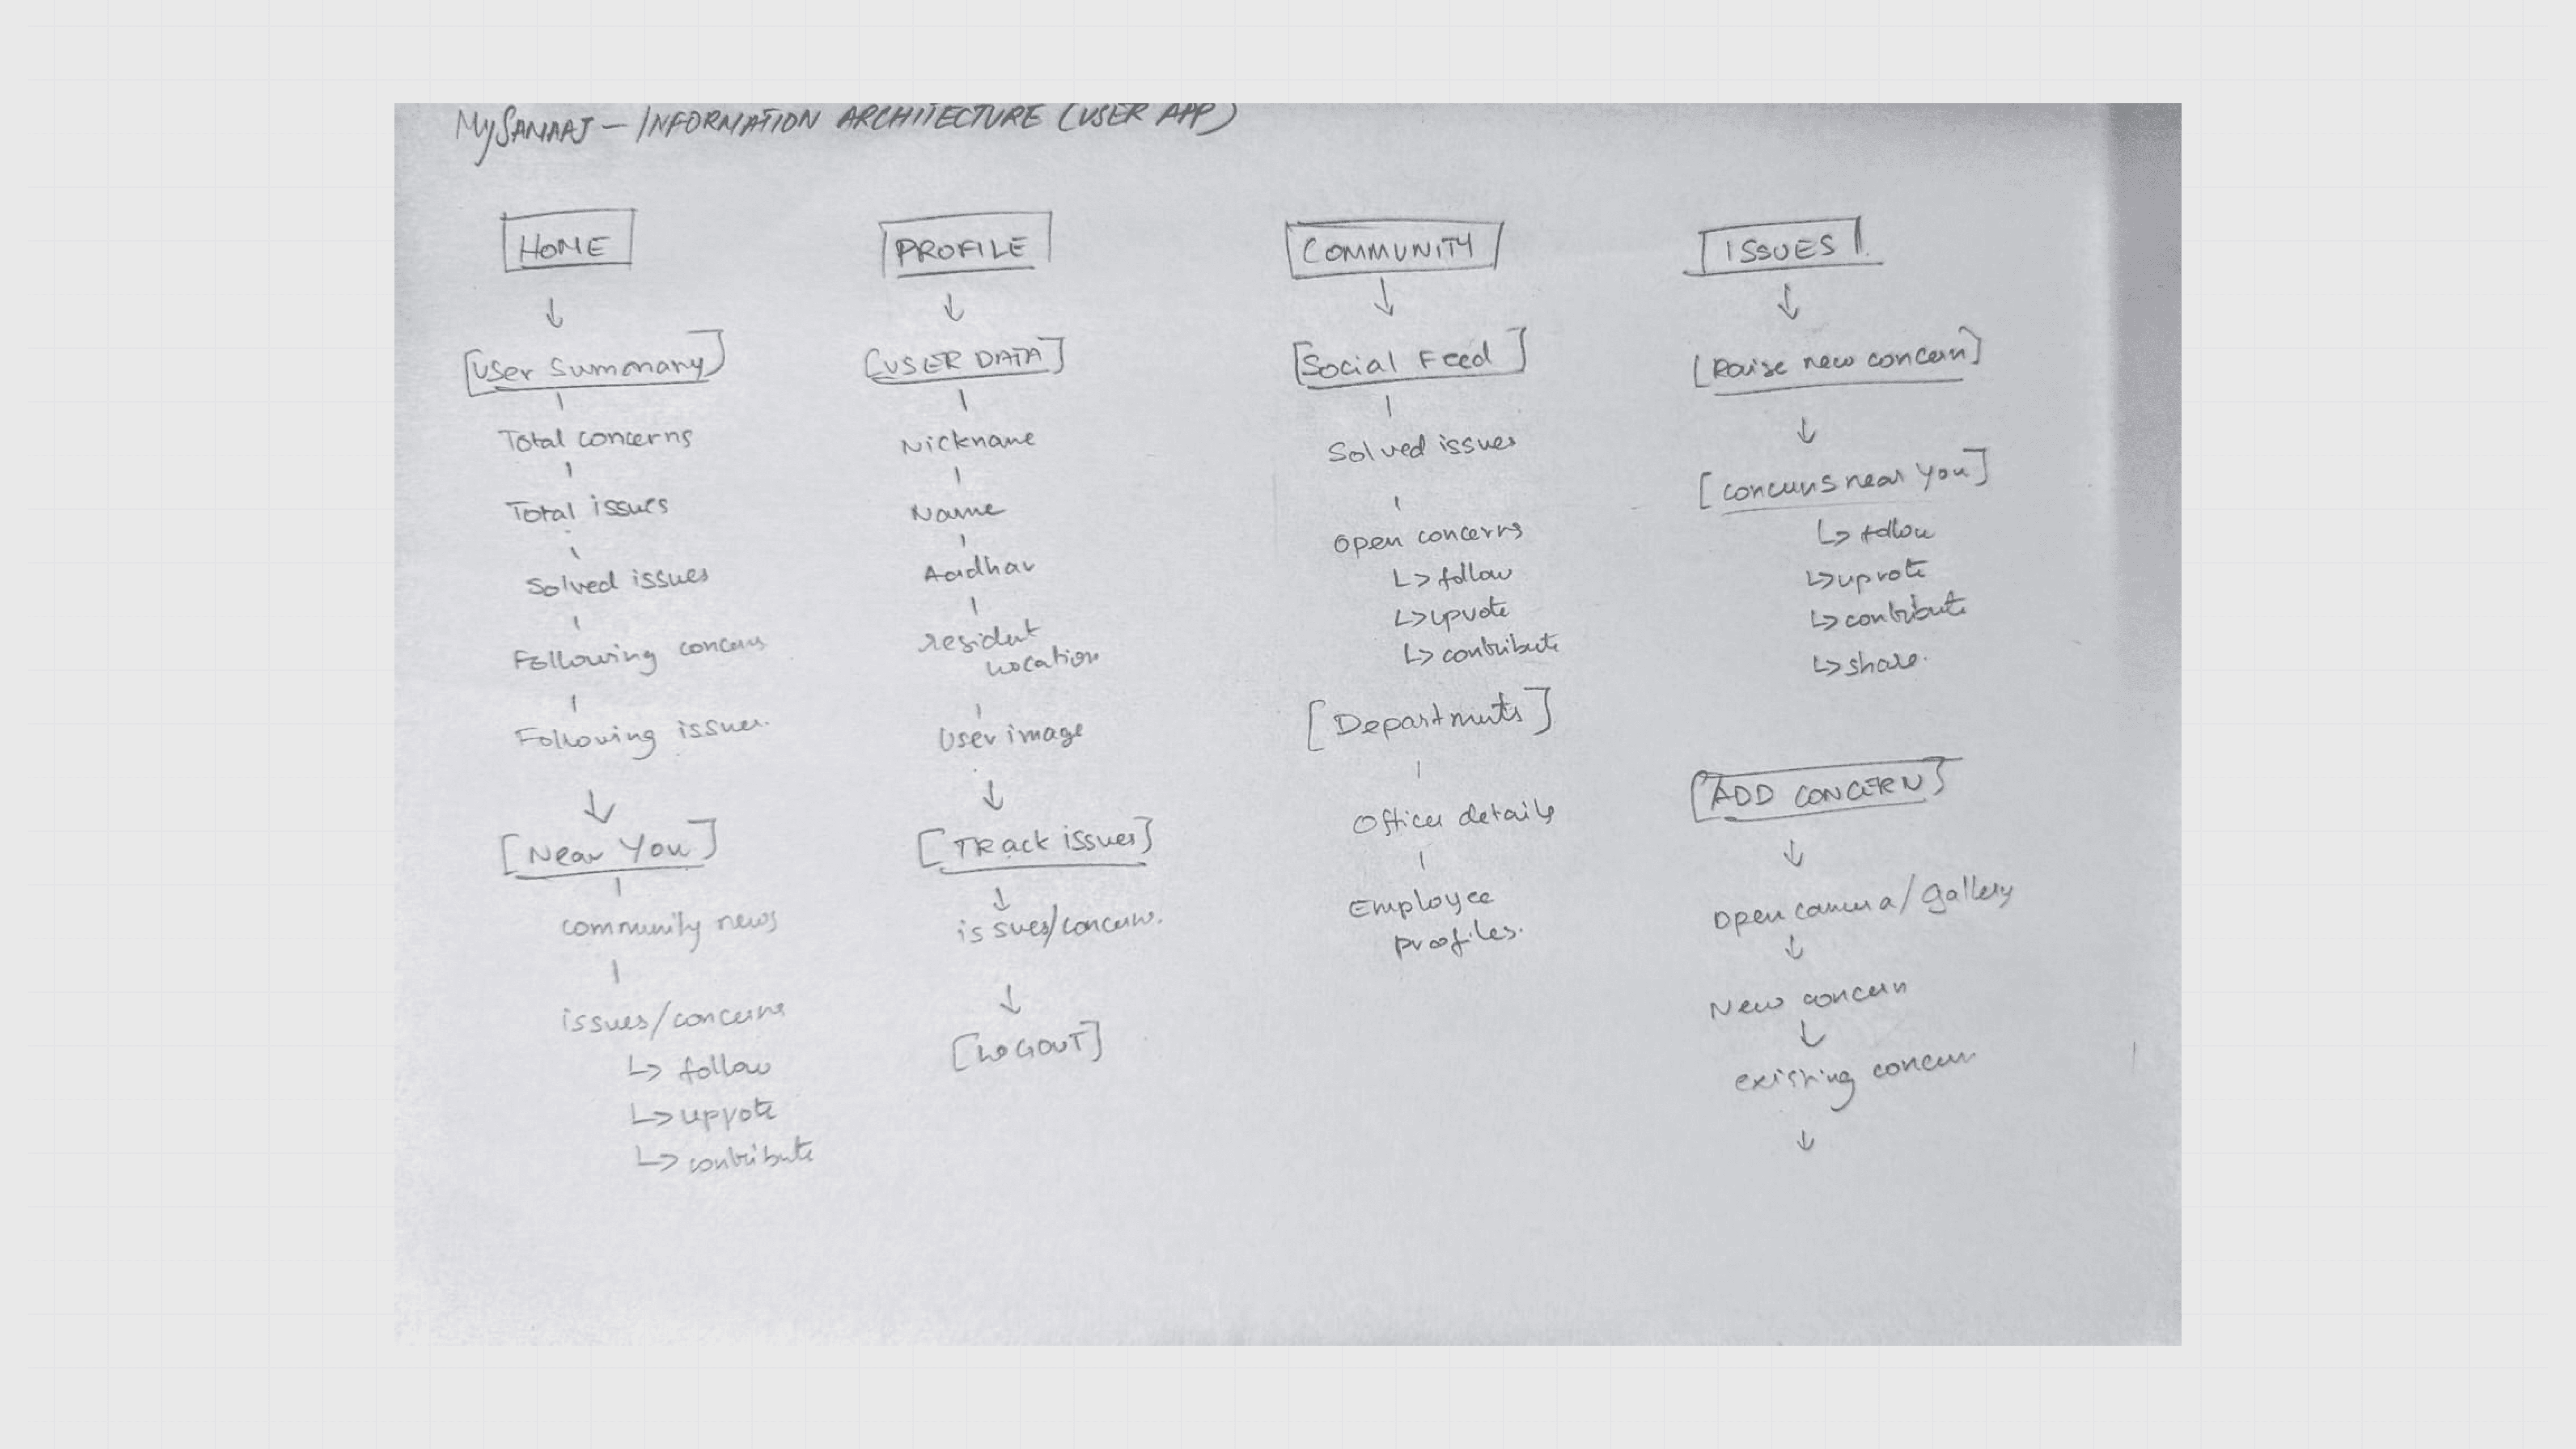 MySAMAAJ – INFORMATION ARCHITECTURE (USER APP)
HOME
[User Summary]
Total concerns
Total issues
Solved issues
Following concerns
Following issues.
[Near You]
community news
issues/concerns
↳ follow
↳ upvote
↳ contribute
PROFILE
[USER DATA]
Nickname
Name
Aadhar
resident
location
User image
[TRack issues]
issues/concerns.
[LOGOUT]
COMMUNITY
[Social Feed]
Solved issues
Open concerns
↳ follow
↳ upvote
↳ contribute
[Departments]
Officer details
Employee
profiles.
ISSUES
[Raise new concern]
[concerns near you]
↳ follow
↳ upvote
↳ contribute
↳ share.
[ADD CONCERN]
Open camera/gallery
New concern
existing concern